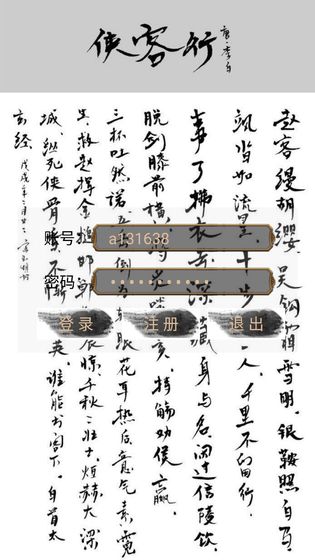 侠客行
唐·李白
赵客缦胡缨，吴钩霜雪明。银鞍照白马，
飒沓如流星。十步一人，千里不留行。
事了拂衣去，深藏身与名。闲过信陵饮，
脱剑膝前横。啖亥，持觞劝侯嬴。
三杯吐然诺，五岳倒眼花耳热后，意气素霓
生。救赵挥金槌，邯郸震惊。千秋二壮士，烜赫大梁
城。纵死侠骨香，不惭英。谁能书阁下，白首太
玄经。
戊戌年
账号
a131638
密码：
登录
注册
退出